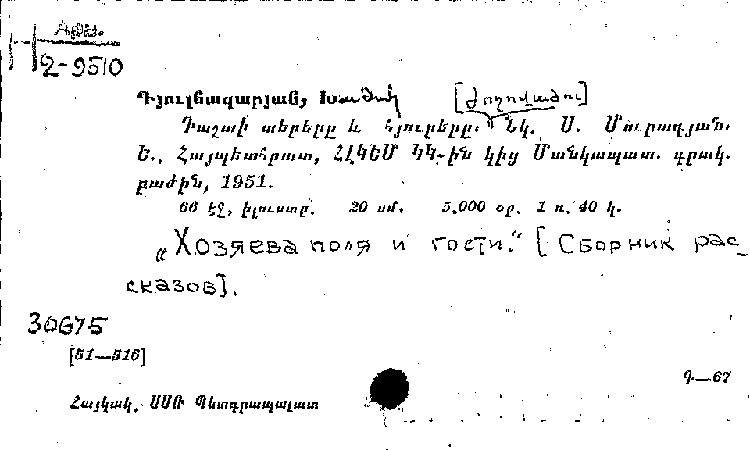 2-9510
Գյուլնազարյան, Խաժակ [Ժողովածու]
Դաշտի տերերը և հյուրերը. Նկ. Ս. Մուրադյան.
Ե., Հայպետհրատ, ՀԼԿԵՄ ԿԿ-ին կից Մանկապատ. գրակ.
բաժին, 1951.
66 էջ, իլուստր. 20 սմ. 5.000 օր. 1 ռ. 40 կ.
„Хозяева поля и гости.“ [Сборник рас-
сказов].
30675
[51—516]
Գ—67
Հայկակ. ՍՍՌ Պետգրապալատ